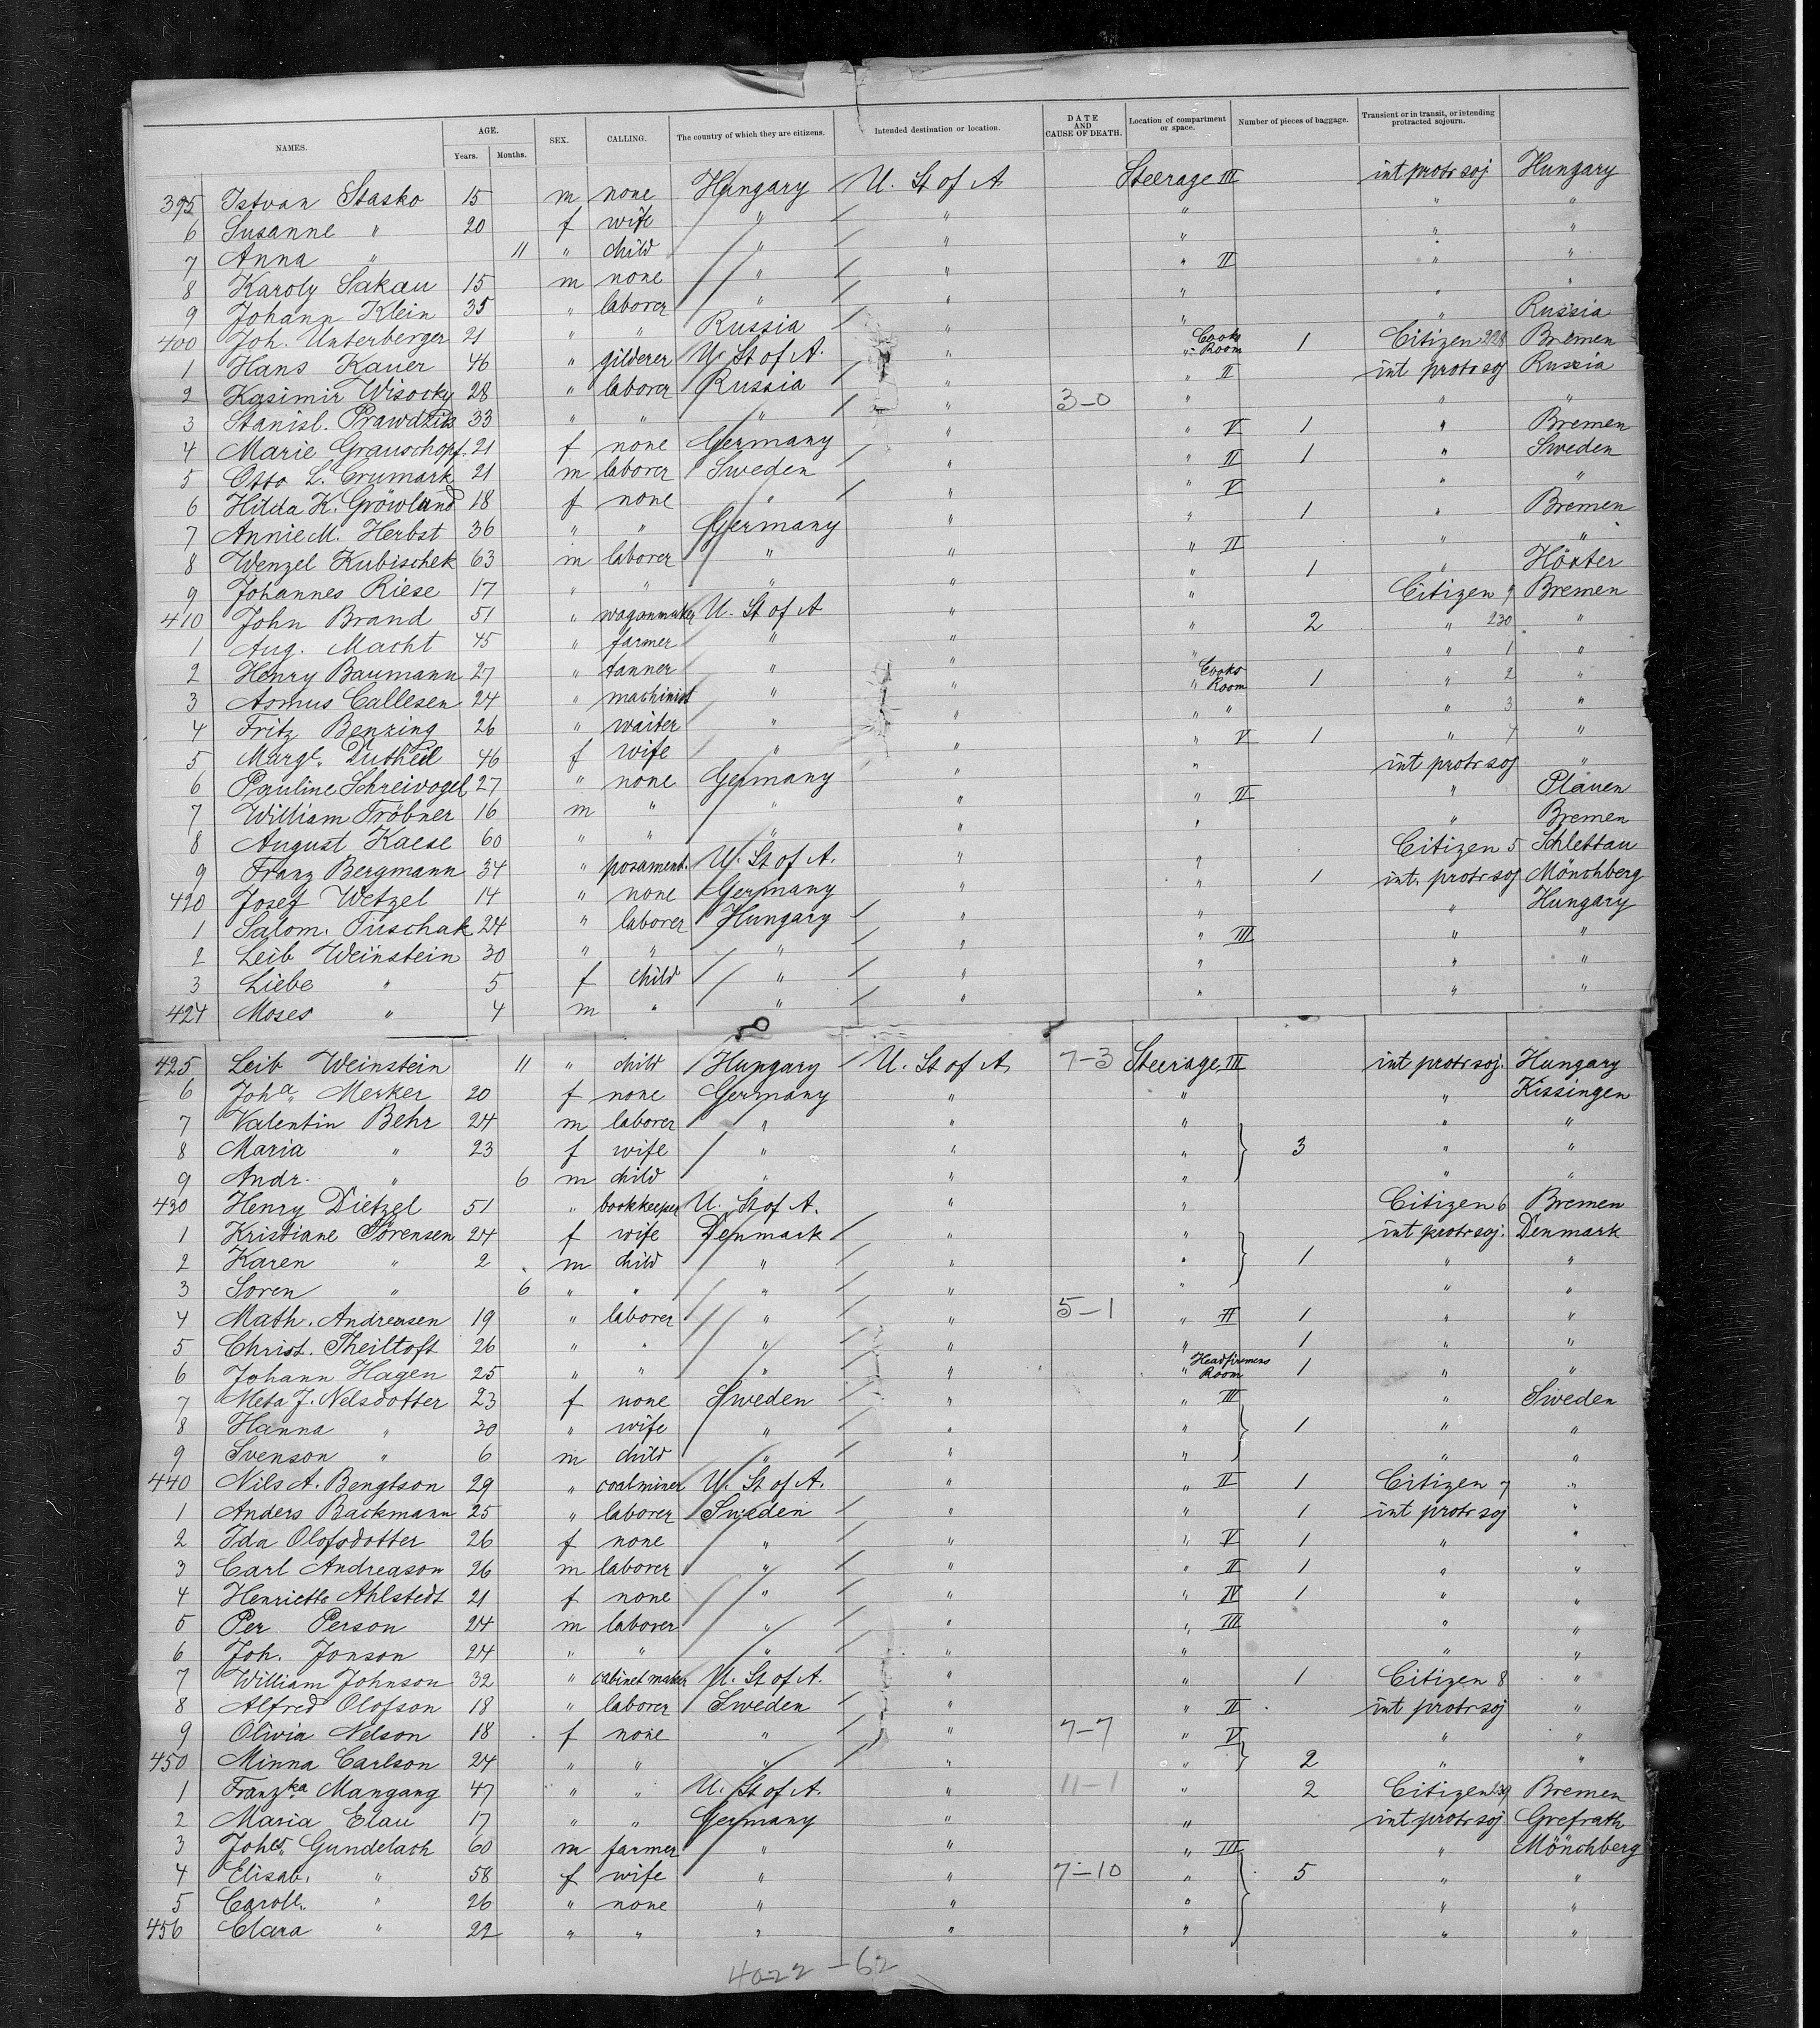 NAMES. AGE. Years. Months. SEX. CALLING. The country of which they are citizens. Intended destination or location. DATE AND CAUSE OF DEATH. Location of compartment or space. Number of pieces of baggage. Transient or in transit, or intending protracted sojourn.
395 Istvan Stasko 15 m none Hungary U. St of A Steerage III int protr soj Hungary
6 Susanne " 20 f wife " " " " "
7 Anna " 11 " child " " " " "
8 Karoly Sakau 15 m none " " " II " "
9 Johann Klein 35 " laborer " " " " "
400 Joh. Unterberger 21 " " Russia " " " Russia
1 Hans Kauer 46 " gilderer U. St of A. " " Cooks Room 1 Citizen 228 Bremen
2 Kasimir Wisocky 28 " laborer Russia " " II int protr soj Russia
3 Stanisl. Prawdzik 33 " " " " 3-0 " " "
4 Marie Grauschopf 21 f none Germany " " V 1 " Bremen
5 Otto L. Crumark 21 m laborer Sweden " " II 1 " Sweden
6 Hilda K. Gröwland 18 f none " " " V " "
7 Annie M. Herbst 36 " " Germany " " 1 " Bremen
8 Wenzel Kubischek 63 m laborer " " " II " "
9 Johannes Riese 17 " " " " " 1 " Höxter
410 John Brand 51 " waganmaker U. St of A " " Citizen 9 Bremen
1 Aug. Macht 45 " farmer " " " 2 " 230 "
2 Henry Baumann 27 " tanner " " " " 1 "
3 Asmus Callesen 24 " machinist " " " Cooks Room 1 " 2 "
4 Fritz Benzing 26 " waiter " " " " " 3 "
5 Margt. Dutheil 46 f wife " " " V 1 " 4 "
6 Pauline Schreivogel 27 " none Germany " " int protr soj "
7 William Fröbner 16 m " " " " II " Plauen
8 August Kaese 60 " " " " " " Bremen
9 Franz Bergmann 34 " posament. U. St of A. " " Citizen 5 Schlettau
420 Josef Wetzel 14 " none Germany " " 1 int. protr soj Mönchberg
1 Salom. Tüschak 24 " laborer Hungary " " " Hungary
2 Leib Weinstein 30 " " " " " III " "
3 Liebe " 5 f child " " " " "
424 Moses " 4 m " " " " " "
425 Leib Weinstein 11 " child Hungary U. St of A 7-3 Steerage III int protr soj. Hungary
6 Joha. Merker 20 f none Germany " " " Kissingen
7 Valentin Behr 24 m laborer " " " " "
8 Maria " 23 f wife " " " 3 " "
9 Andr. " 6 m child " " " " "
430 Henry Dietzel 51 " bookkeeper U. St of A. " " Citizen 6 Bremen
1 Kristiane Sörensen 24 f wife Denmark " " int protr soj. Denmark
2 Karen " 2 m child " " " 1 " "
3 Soren " 6 " " " " " " "
4 Math. Andreasen 19 " laborer " " 5-1 " II 1 " "
5 Christ. Theiltoft 26 " " " " " 1 " "
6 Johann Hagen 25 " " " " " Headfiremens Room 1 " "
7 Meta J. Nelsdotter 23 f none Sweden " " III " Sweden
8 Hanna " 30 " wife " " " 1 " "
9 Svenson " 6 m child " " " " "
440 Nils A. Bengtson 29 " coalminer U. St of A. " " II 1 Citizen 7 "
1 Anders Backmann 25 " laborer Sweden " " 1 int protr soj "
2 Ida Olofsdotter 26 f none " " " V 1 " "
3 Carl Andreason 26 m laborer " " " II 1 " "
4 Henriette Ahlstedt 21 f none " " " IV 1 " "
5 Per Person 24 m laborer " " " III " "
6 Joh. Jonson 24 " " " " " " "
7 William Johnson 32 " cabinet maker U. St of A. " " 1 Citizen 8 "
8 Alfred Olofson 18 " laborer Sweden " " II int protr soj "
9 Olivia Nelson 18 f none " " 7-7 " V " "
450 Minna Carlson 24 " " " " " 2 " "
1 Franzka Mangang 47 " " U. St of A. " 11-1 " 2 Citizen Bremen
2 Maria Elau 17 " " Germany " " int protr soj Grefrath
3 Johs. Gundelach 60 m farmer " " " III " Mönchberg
4 Elisab. " 58 f wife " " 7-10 " 5 " "
5 Carol. " 26 " none " " " " "
456 Clara " 22 " " " " " " "
4022 - 62